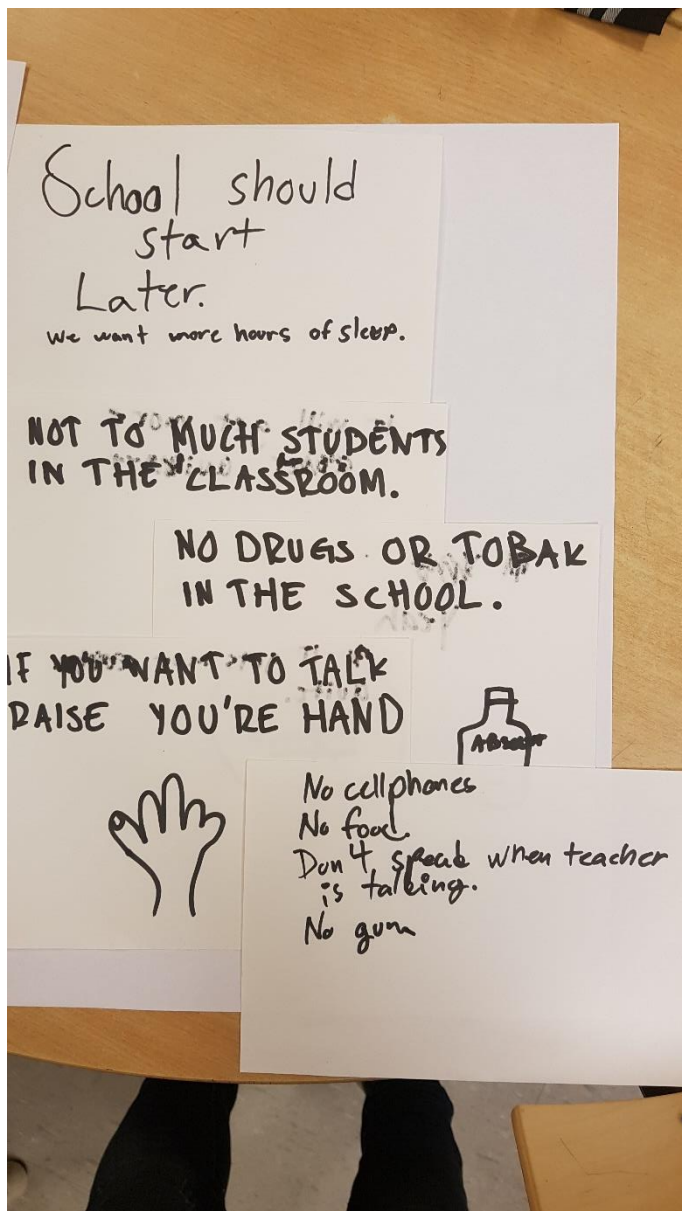 School should
start
Later.
We want more hours of sleep.
NOT TO MUCH STUDENTS
IN THE CLASSROOM.
NO DRUGS OR TOBAK
IN THE SCHOOL.
IF YOU WANT TO TALK
RAISE YOU'RE HAND
No cellphones
No food.
Don't speak when teacher
is talking.
No gum